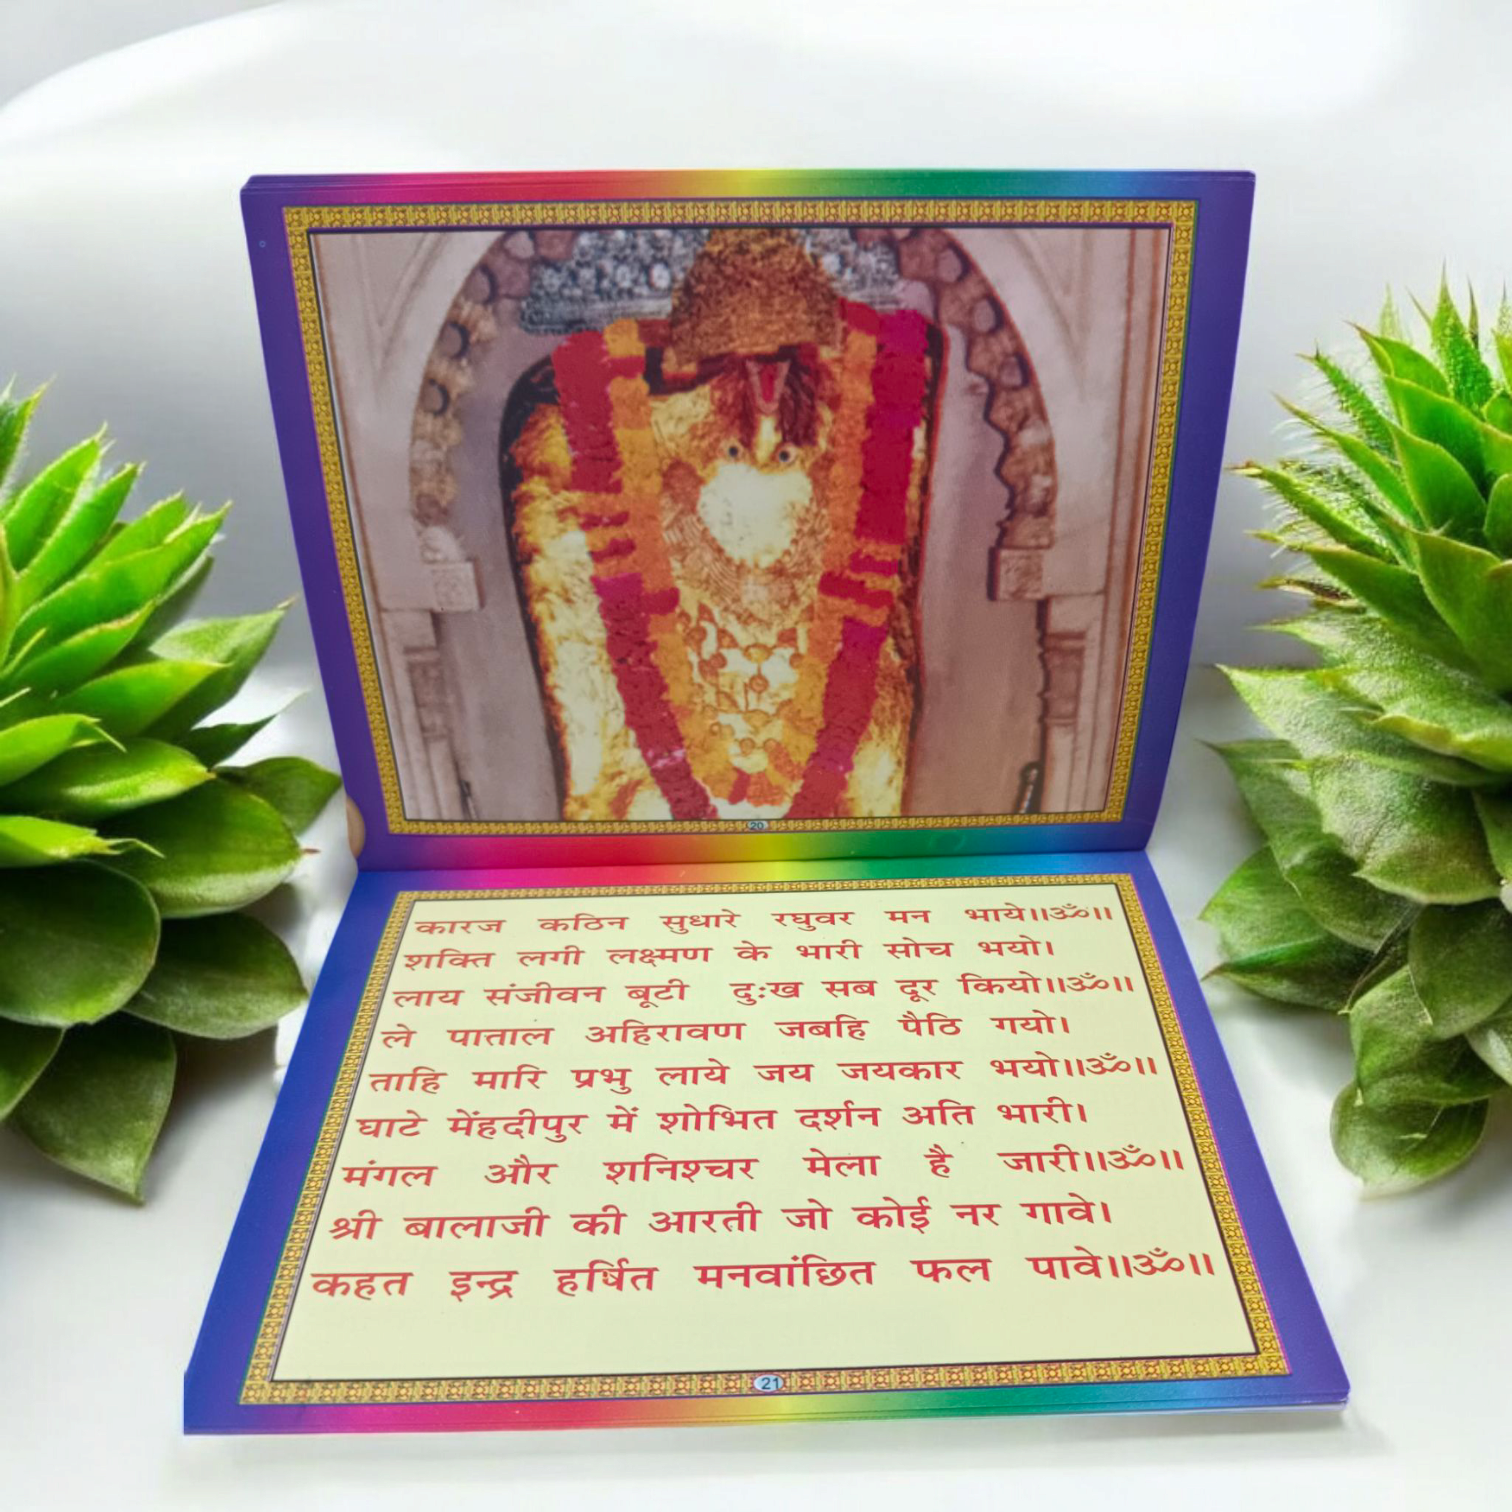 20
कारज कठिन सुधारे रघुवर मन भाये॥ॐ॥
शक्ति लगी लक्ष्मण के भारी सोच भयो।
लाय संजीवन बूटी दुःख सब दूर कियो॥ॐ॥
ले पाताल अहिरावण जबहि पैठि गयो।
ताहि मारि प्रभु लाये जय जयकार भयो॥ॐ॥
घाटे मेंहदीपुर में शोभित दर्शन अति भारी।
मंगल और शनिश्चर मेला है जारी॥ॐ॥
श्री बालाजी की आरती जो कोई नर गावे।
कहत इन्द्र हर्षित मनवांछित फल पावे॥ॐ॥
21